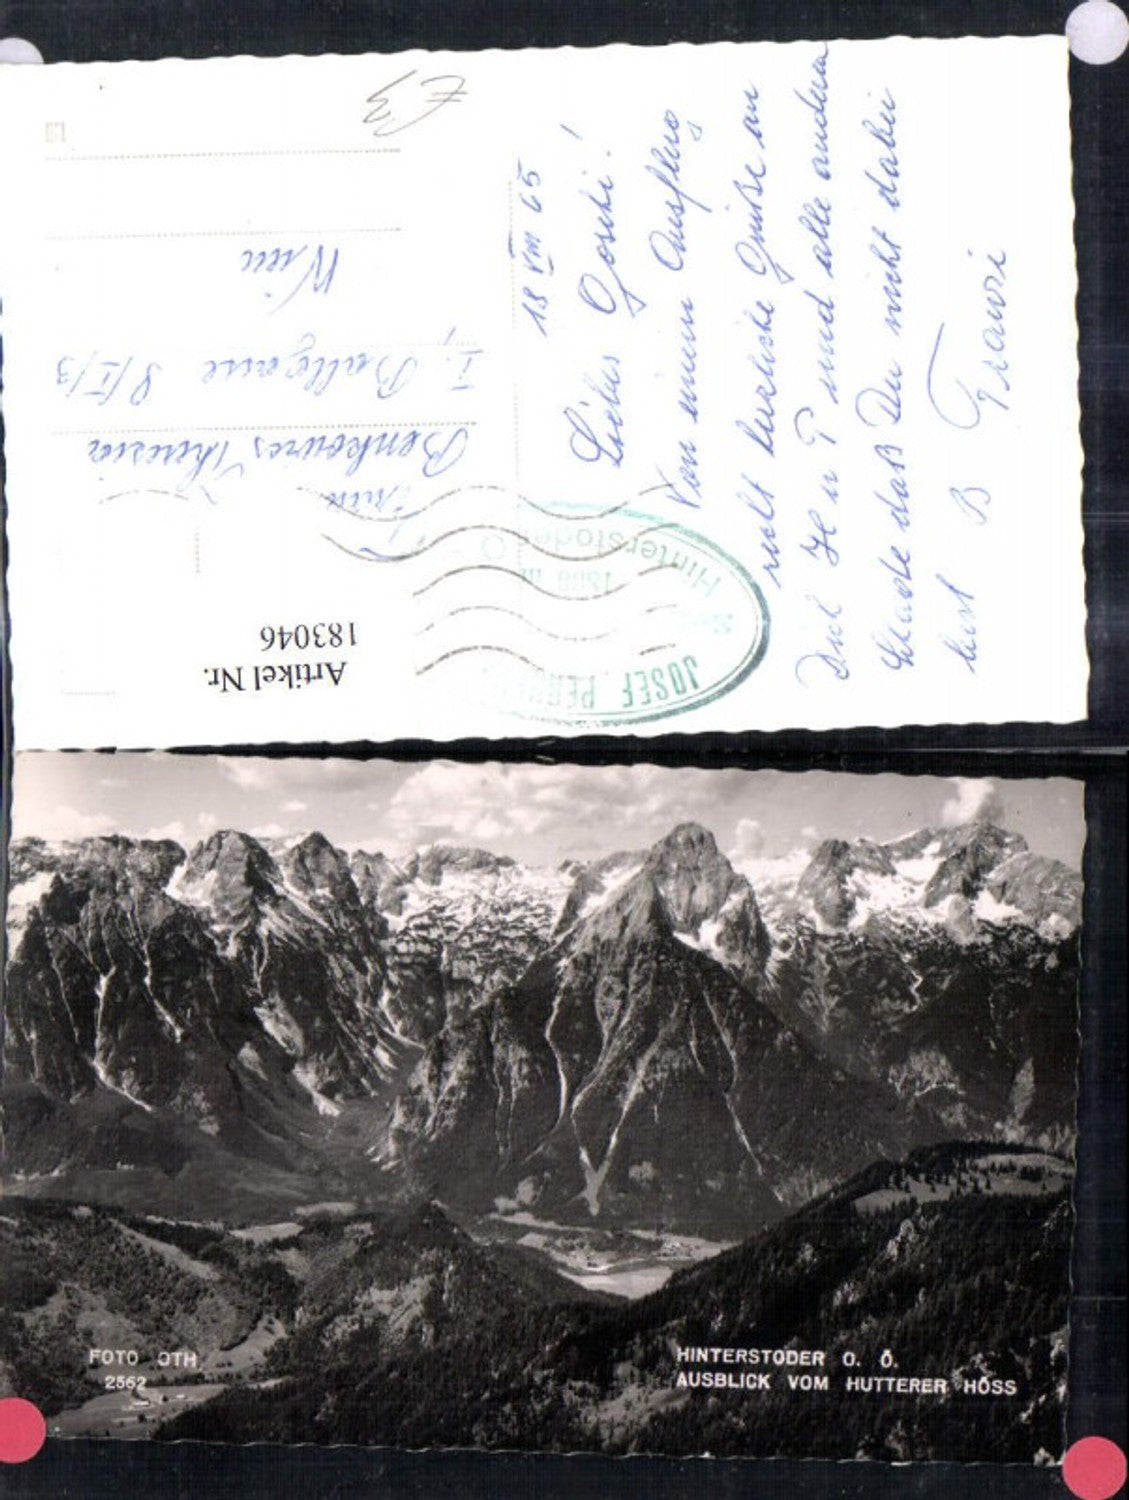 18 VIII 65
Liebes Goschi!
Von einem Ausflug
recht herzliche Grüße an
Dich H u P und alle andern
Schade daß Du nicht dabei
bist B Franzi
Theresia
I. Ballgasse 8/I/3
Wien
£3
JOSEF
1800 m
Hinterstoder
Artikel Nr.
183046
FOTO OTH
2562
HINTERSTODER O. Ö.
AUSBLICK VOM HUTTERER HÖSS